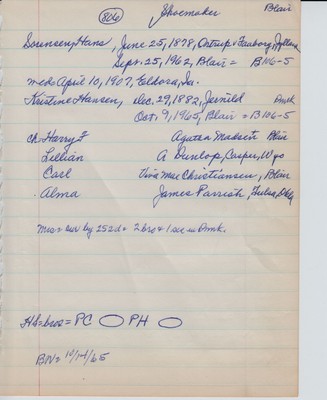 806 Shoemaker Blair
Sorensen, Hans, June 25, 1878, Ontrup v Faaborg, Jylland
Sept. 25, 1962, Blair = B116-5
med. April 10, 1907, Eldora, Ia.
Kristine Hansen, Dec. 29, 1882, Jernild Dmk
Oct. 9, 1965, Blair = B106-5
ch. Harry F Agatha Madsen Blair
Lillian A Dunlop, Casper, Wyo
Carl Viva Mae Christiansen, Blair
Alma James Parrish, Tulsa, Okla
Mrs = sur by 2s2d + 2 bro & 1 sis in Dmk.
Hs = bros = PC PH
BN = 10/14/65